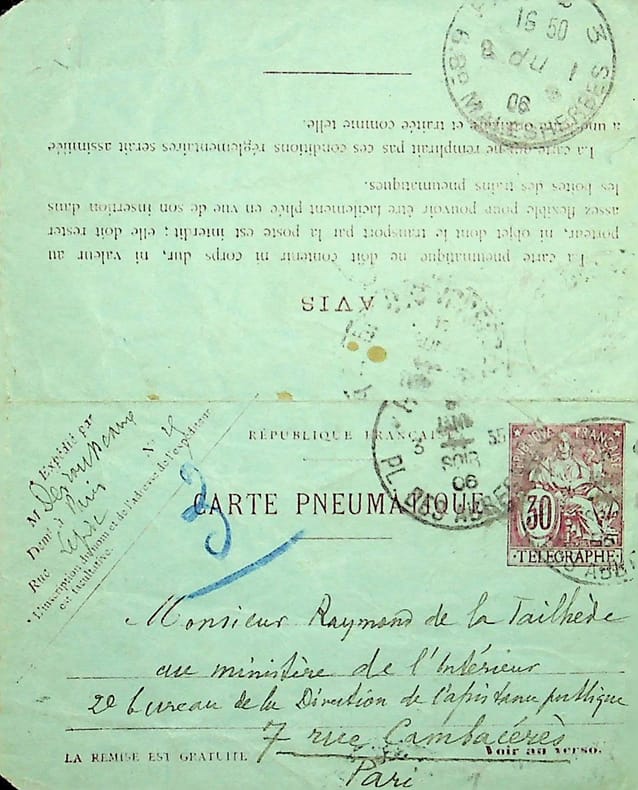 AVIS
La carte pneumatique ne doit contenir ni corps dur, ni valeur au
porteur, ni objet dont le transport par la poste est interdit ; elle doit rester
assez flexible pour pouvoir être facilement pliée en vue de son insertion dans
les boîtes des trains pneumatiques.
La carte qui ne remplirait pas ces conditions réglementaires serait assimilée
à une et traitée comme telle.
16 50
90
RÉPUBLIQUE FRANÇAISE
CARTE PNEUMATIQUE
3
Expédié par
M
Demt à Paris
Rue Lepic No 25
L'inscription du nom et de l'adresse de l'expéditeur
est facultative.
PL. DES ABBESSES
3 55
SOIR
06
30
TÉLÉGRAPHE
Monsieur Raymond de la Tailhède
au ministère de l'Intérieur
2e bureau de la Direction de l'assistance publique
7 rue Cambacérès
Voir au verso.
LA REMISE EST GRATUITE
Pari